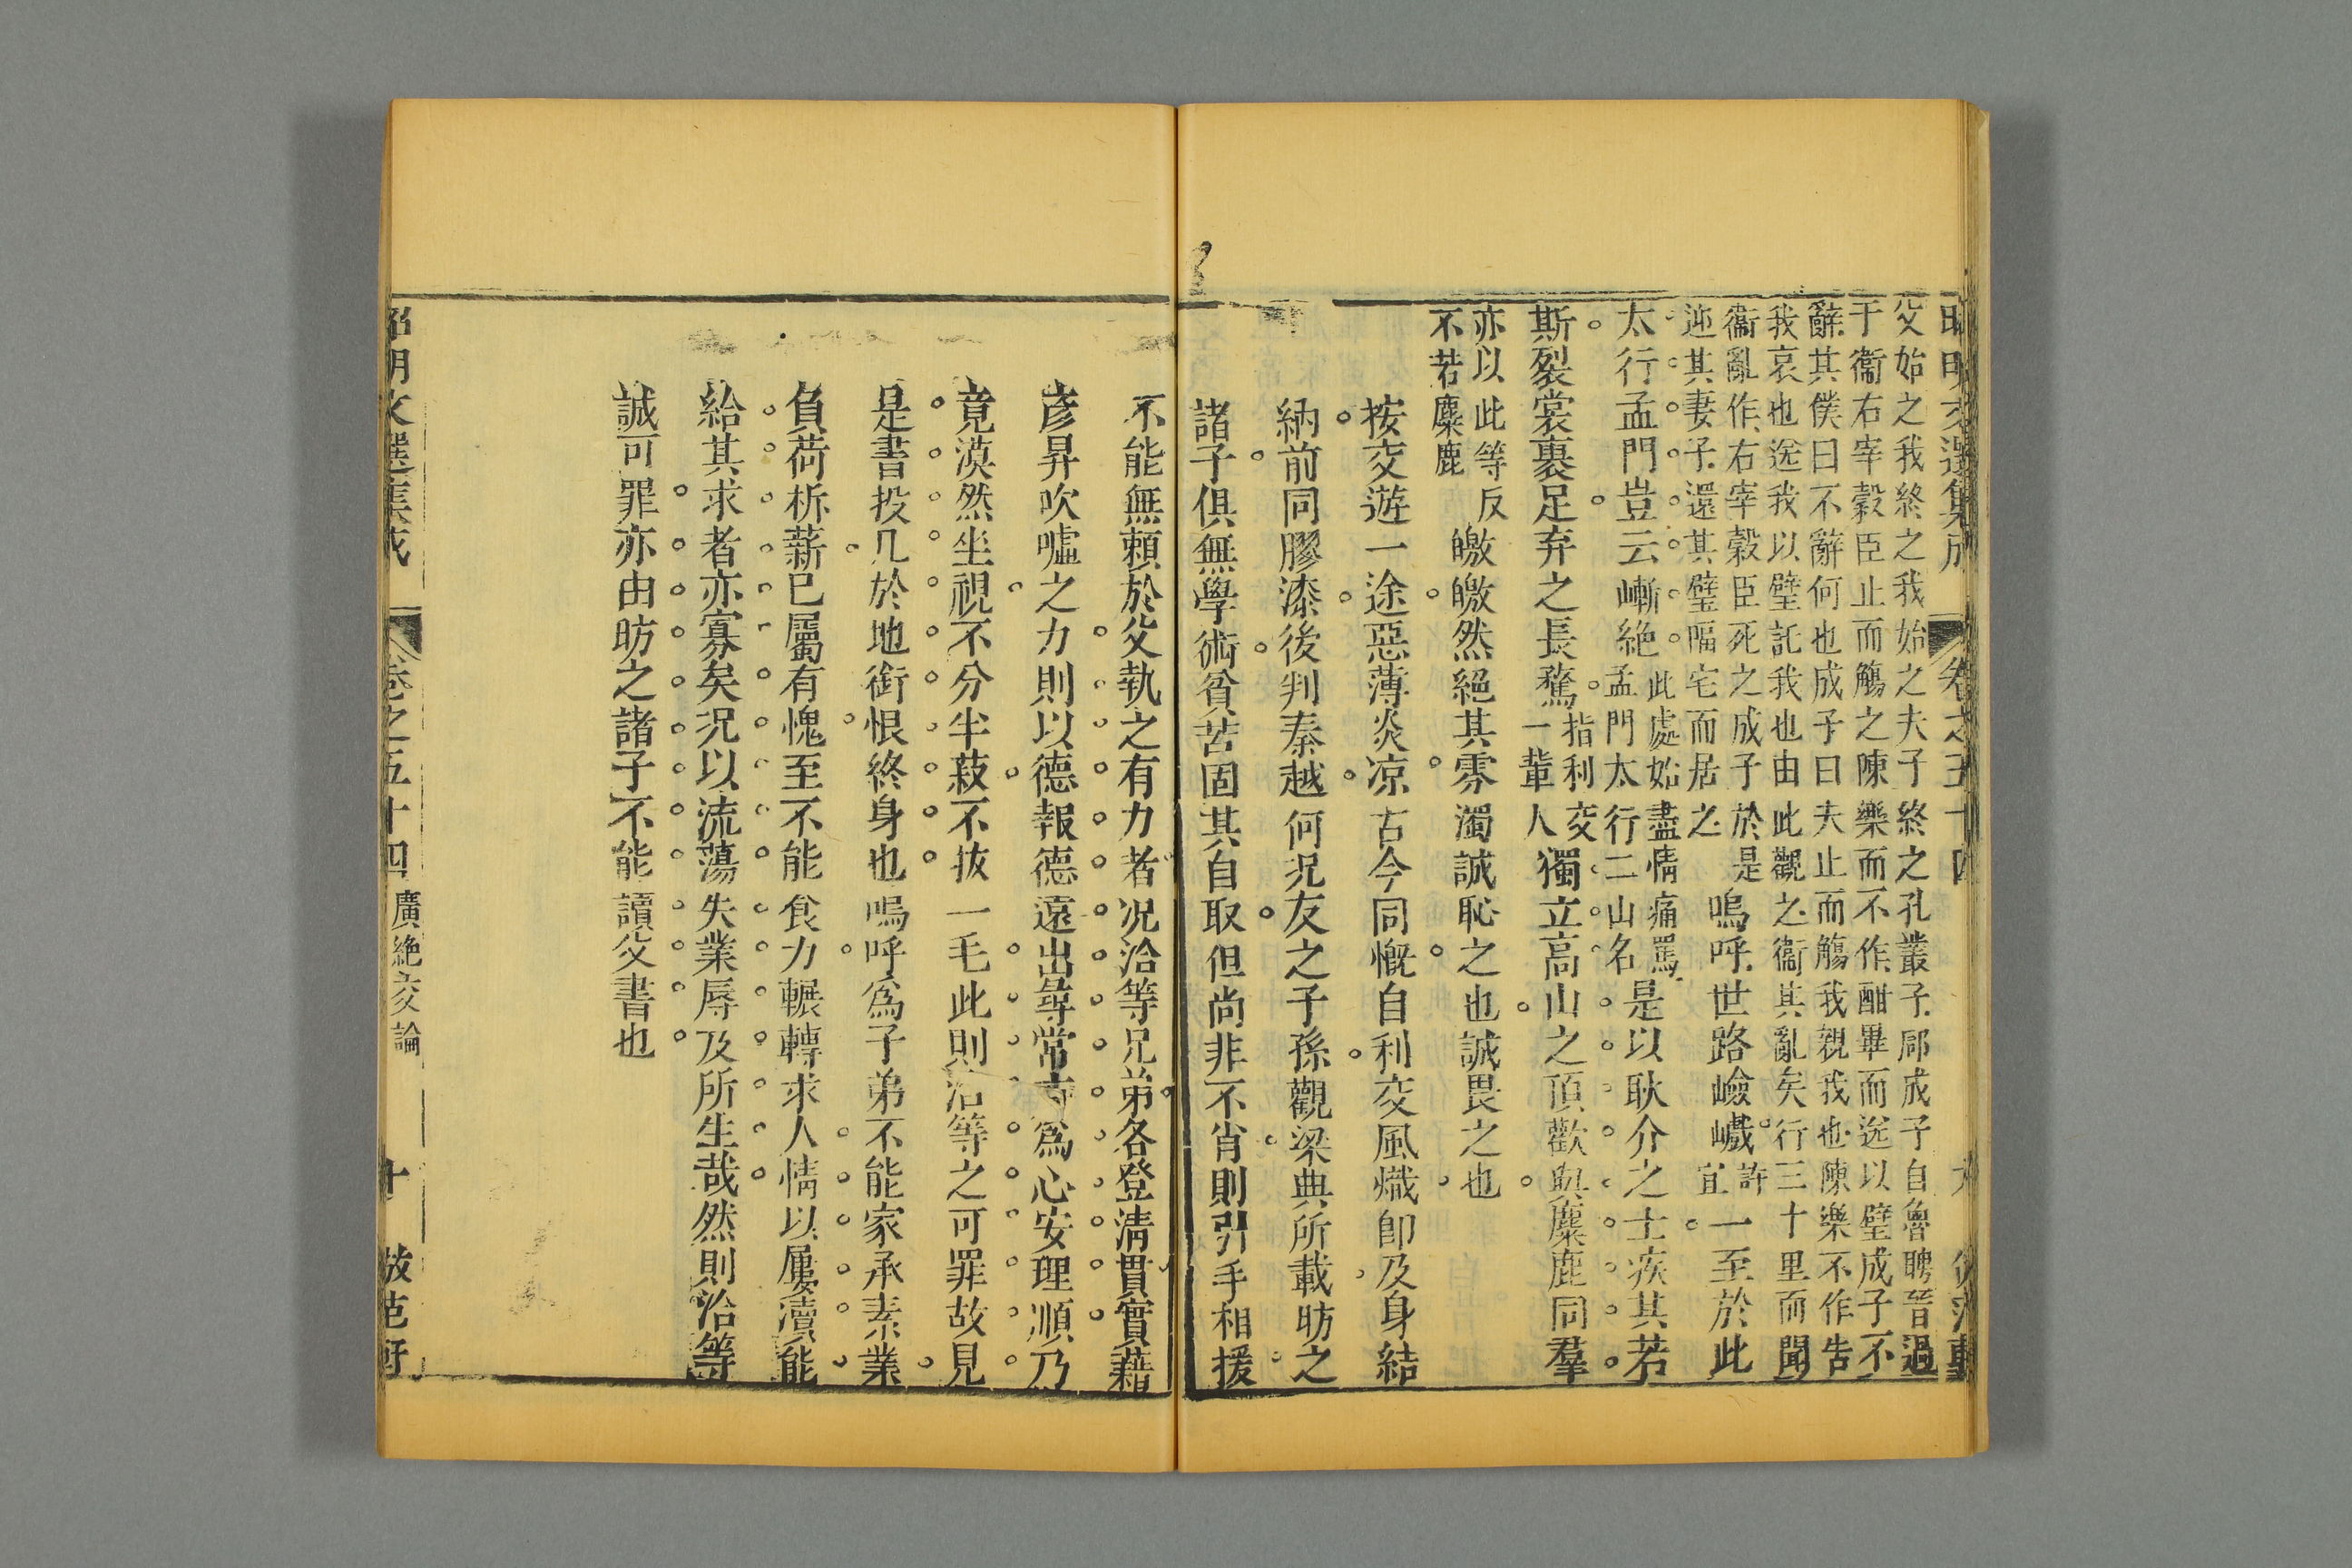 昭明文選集成 卷之五十四
父始之我終之我始之夫子終之孔叢子郈成子自魯聘晉過
于衞右宰穀臣止而觴之陳樂而不作酣畢而送以璧成子不
辭其僕曰不辭何也成子曰夫止而觴我親我也陳樂不作告
我哀也送我以璧託我也由此觀之衞其亂矣行三十里而聞
衞亂作右宰穀臣死之成子於是
迎其妻子還其璧隔宅而居之
嗚呼世路嶮巇許宜一至於此
太行孟門豈云嶃絕此處始盡情痛罵孟門太行二山名是以耿介之士疾其若
斯裂裳裹足弃之長騖指利交一輩人獨立高山之頂歡與麋鹿同羣
亦以此等反不若麋鹿皦皦然絕其雰濁誠恥之也誠畏之也
按交遊一途惡薄炎凉古今同慨自利交風熾卽及身結
納前同膠漆後判秦越何况友之子孫觀梁典所載昉之
諸子俱無學術貧苦固其自取但尚非不肖則引手相援
不能無頼於父執之有力者况洽等兄弟各登淸貫實藉
彦昇吹嘘之力則以德報德遠出尋常 爲心安理順乃
竟漠然坐視不分半菽不拔一毛此則洽等之可罪故見
是書投几於地銜恨終身也嗚呼爲子弟不能家承素業
負荷析薪已屬有愧至不能食力輾轉求人情以屢瀆能
給其求者亦寡矣况以流蕩失業辱及所生哉然則洽等
誠可罪亦由昉之諸子不能讀父書也
昭明文選集成 卷之五十四 廣絶交論 十